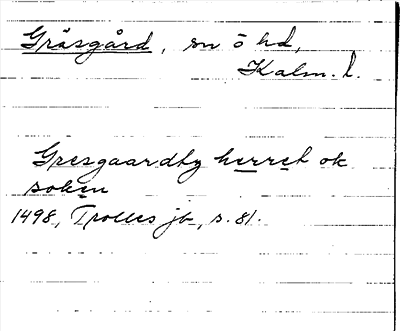 Gräsgård, sn o hd,
Kalm. l.
Gresgaardtz herret ok
soken
1498, Trolles jb, s. 81.